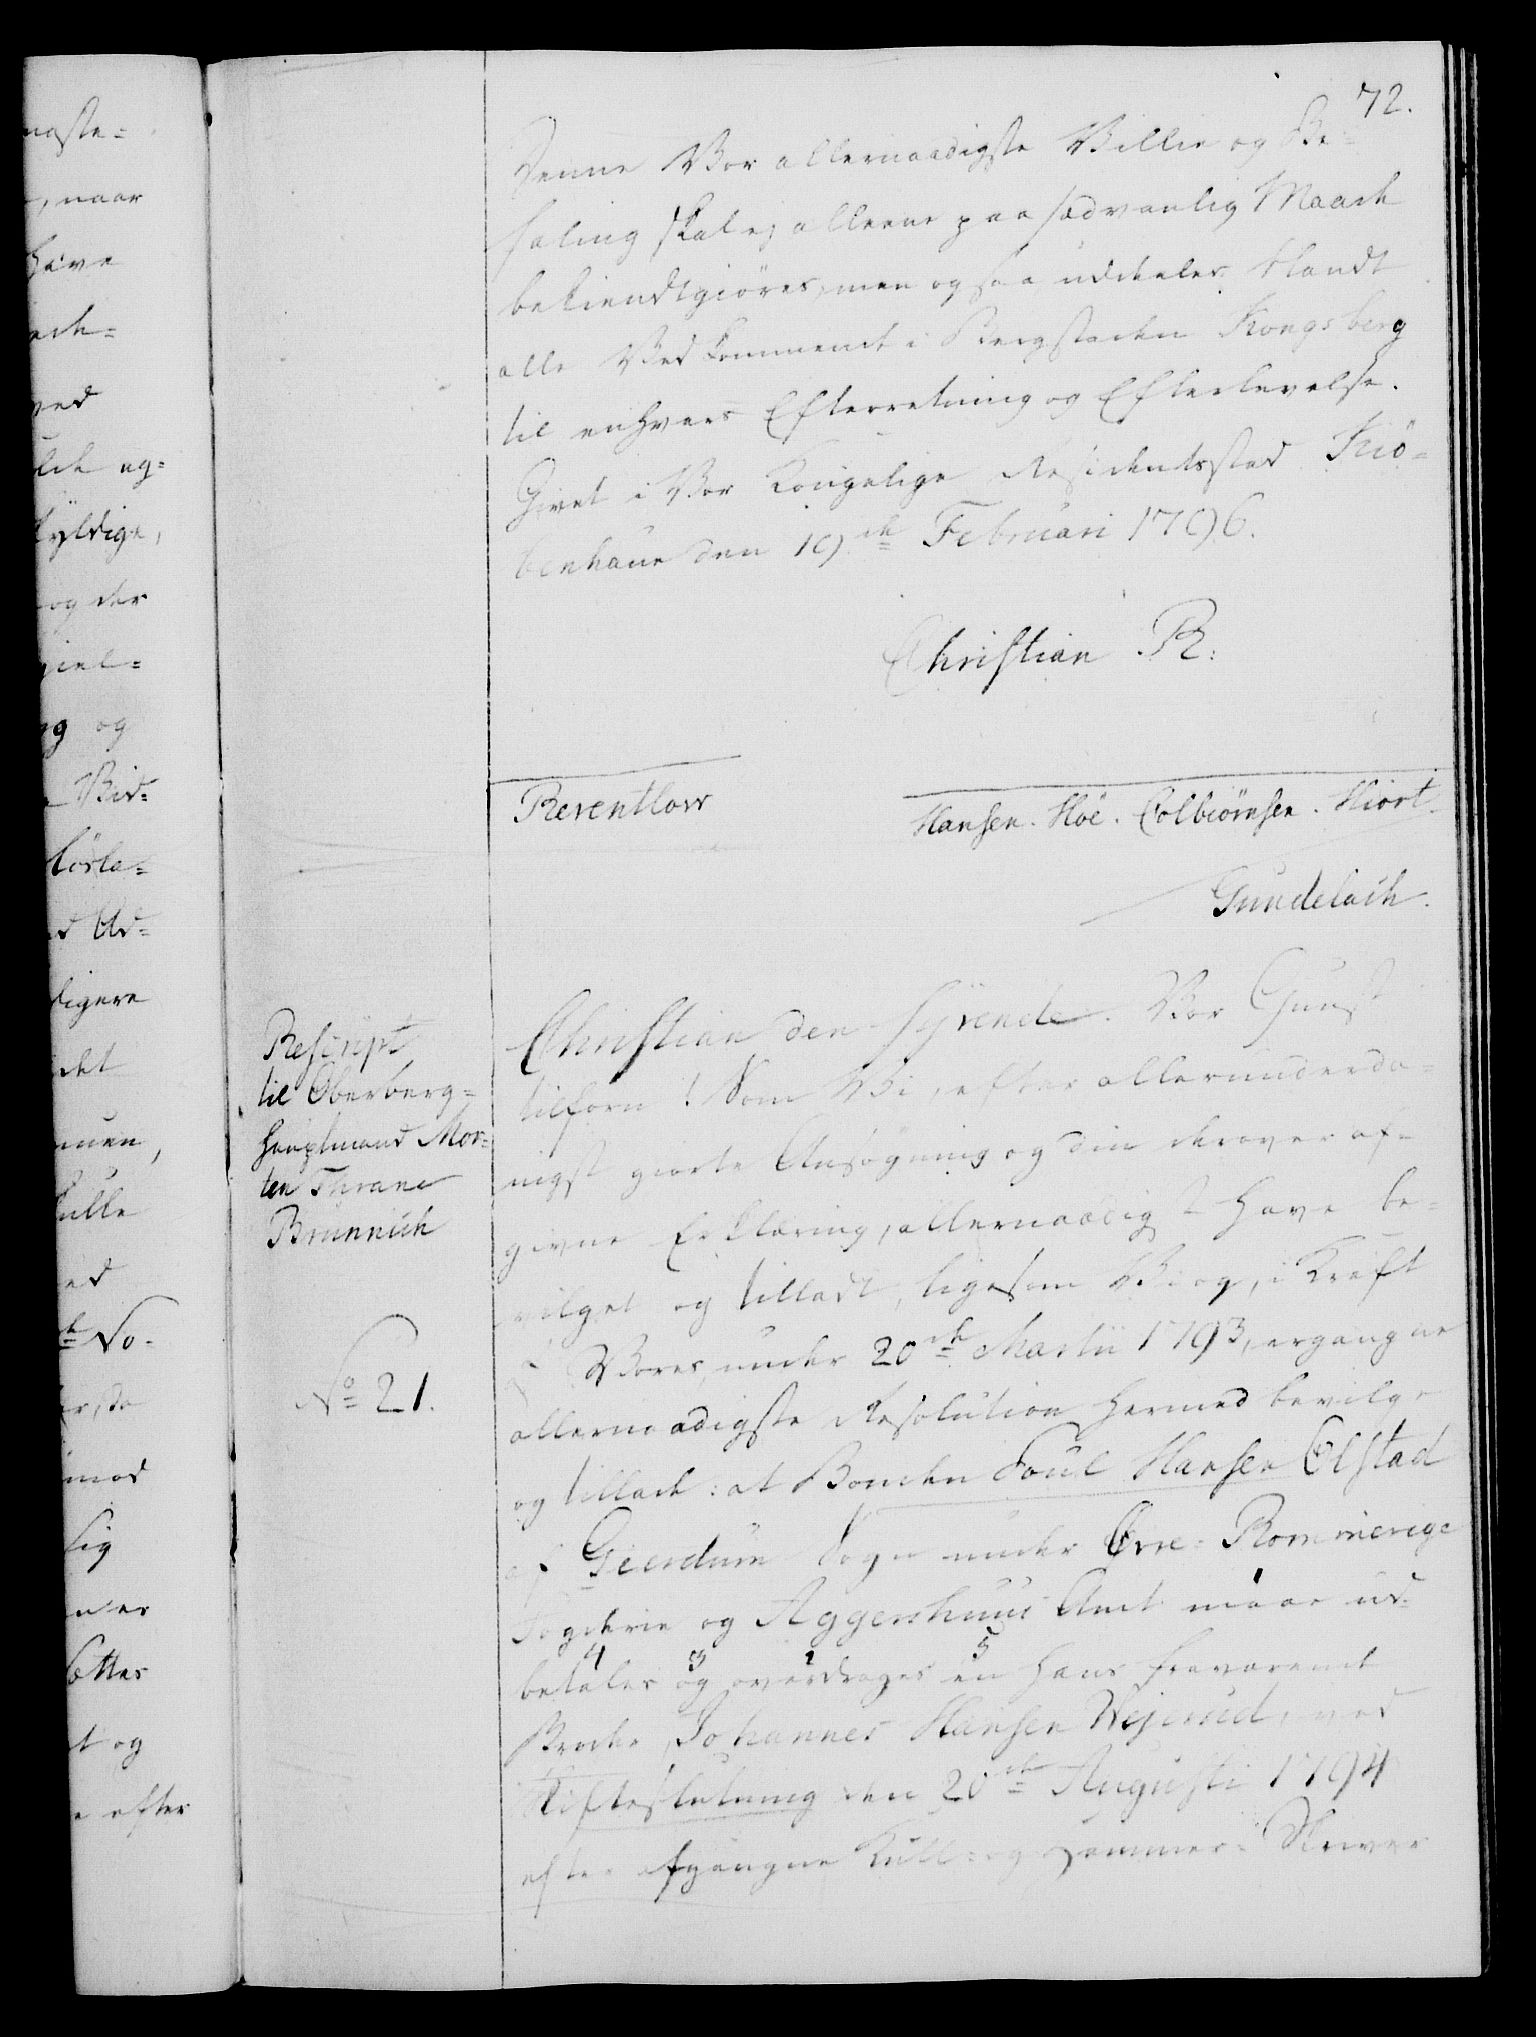 72.
Denne Vor allernaadigste Villie og Be-
faling skal ej alleene paa sædvanlig Maade
bekiendtgiøres, men og saa uddeeles blandt
alle Vedkommende i Bergstaden Kongsberg
til enhvers Efterretning og Efterlevelse.
Givet i Vor Kongelige Residentsstad Kiö-
benhavn den 19de Februari 1796.
Christian R.
Reventlow
Hansen. Höe. Colbiørnsen. Hiort.
Gundelach.
Rescript
til Oberberg-
hauptmand Mor-
ten Thrane
Brünnich
No 21.
Christian den Syvende. Vor Gunst
tilforn! Som Vi, efter allerunderda-
nigst giorte Ansøgning og din derover af-
givne Erklæring, allernaadigst have be-
vilget og tilladt, ligesom Vi og, i Kraft
af Vores, under 20de Martii 1793, ergangne
allernaadigste Resolution hermed bevilge
og tillade: at Bonden Poul Hansen Olstad
af Gierdum Sogn under Øvre-Rommerige
Fogderie og Aggershuus Amt maae ud-
betales og overdrages en hans fraværende
Broder, Johannes Hansen Wejerud, ved
Skifteslutning den 20de Augusti 1794
efter afgangne Kull- og Hammer-Skriver
maste-
, naar
have
ved
og-
skyldige,
og der
giel-
og
Bid-
Ad-
digere
det
skulle
ed
So-
mod
sig
ner
t og
e efter